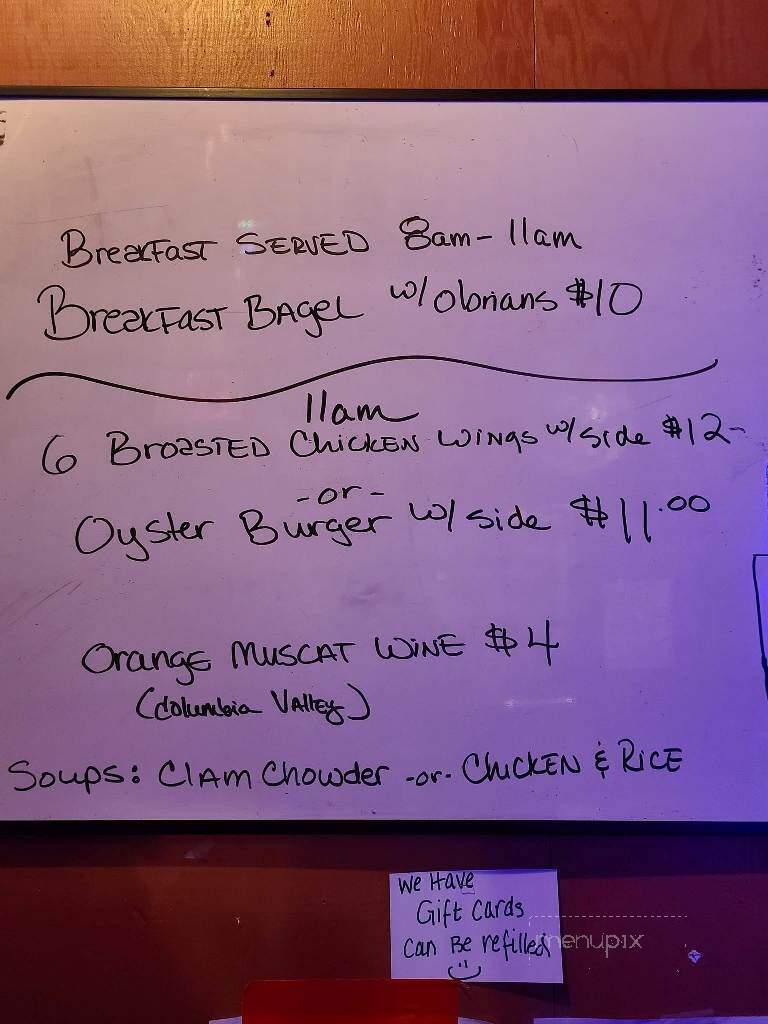 Breakfast Served 8am - 11am
Breakfast Bagel w/ obrians $10
11am
6 Broasted Chicken Wings w/ side $12-
-or-
Oyster Burger w/ side $11.00
Orange Muscat Wine $4
(Columbia Valley)
Soups: Clam Chowder -or- Chicken & Rice
We Have
Gift Cards
Can Be refilled
menupix